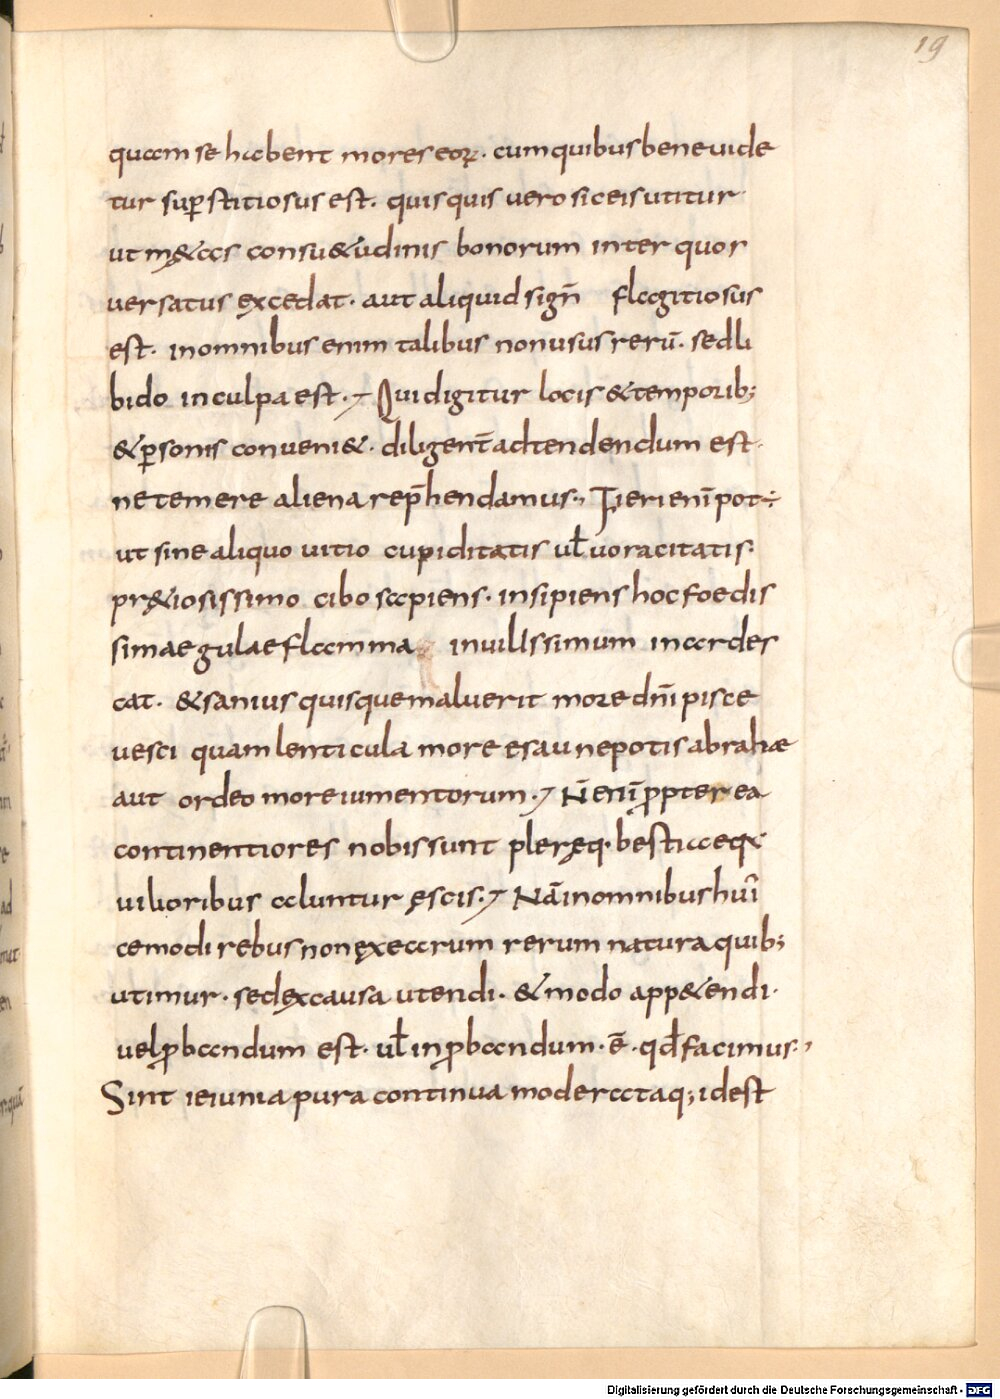 19
quam se habent mores eoꝝ. cum quibus bene uide
tur suꝑstitiosus est. quisquis uero sic eis utitur
ut m&as consu&udinis bonorum inter quor
uersatus excedat. aut aliquid sign̄ flagitiosus
est. in omnibus enim talibus non usus rerū. sed li
bido in culpa est. Quid igitur locis & temporib;
& ꝑsonis conueni&. diligent̄ adtendendum est.
ne temere aliena rep̄hendamus. Fieri eni̅ pot÷
ut sine aliquo uitio cupiditatis ul̄ uoracitatis.
pr&iosissimo cibo sapiens. insipiens hoc foedis
simae gulae flamma in uilissimum incardes
cat. & sanius quisque maluerit more dn̄i pisce
uesci quam lenticula more esau nepotis abrahæ
aut ordeo more iumentorum. N̄ eni̅ ꝓpter ea
continentiores nobis sunt pleręq. bestiae q
uilioribus aluntur ęscis. Nā in omnibus hui̅
cemodi rebus non ex earum rerum natura quib;
utimur. sed ex causa utendi. & modo app&endi.
uel ꝓbandum est. ul̄ inꝓbandum. ē. qd̄ facimus.
Sint ieiunia pura continua moderataq; idest
Digitalisierung gefördert durch die Deutsche Forschungsgemeinschaft - DFG